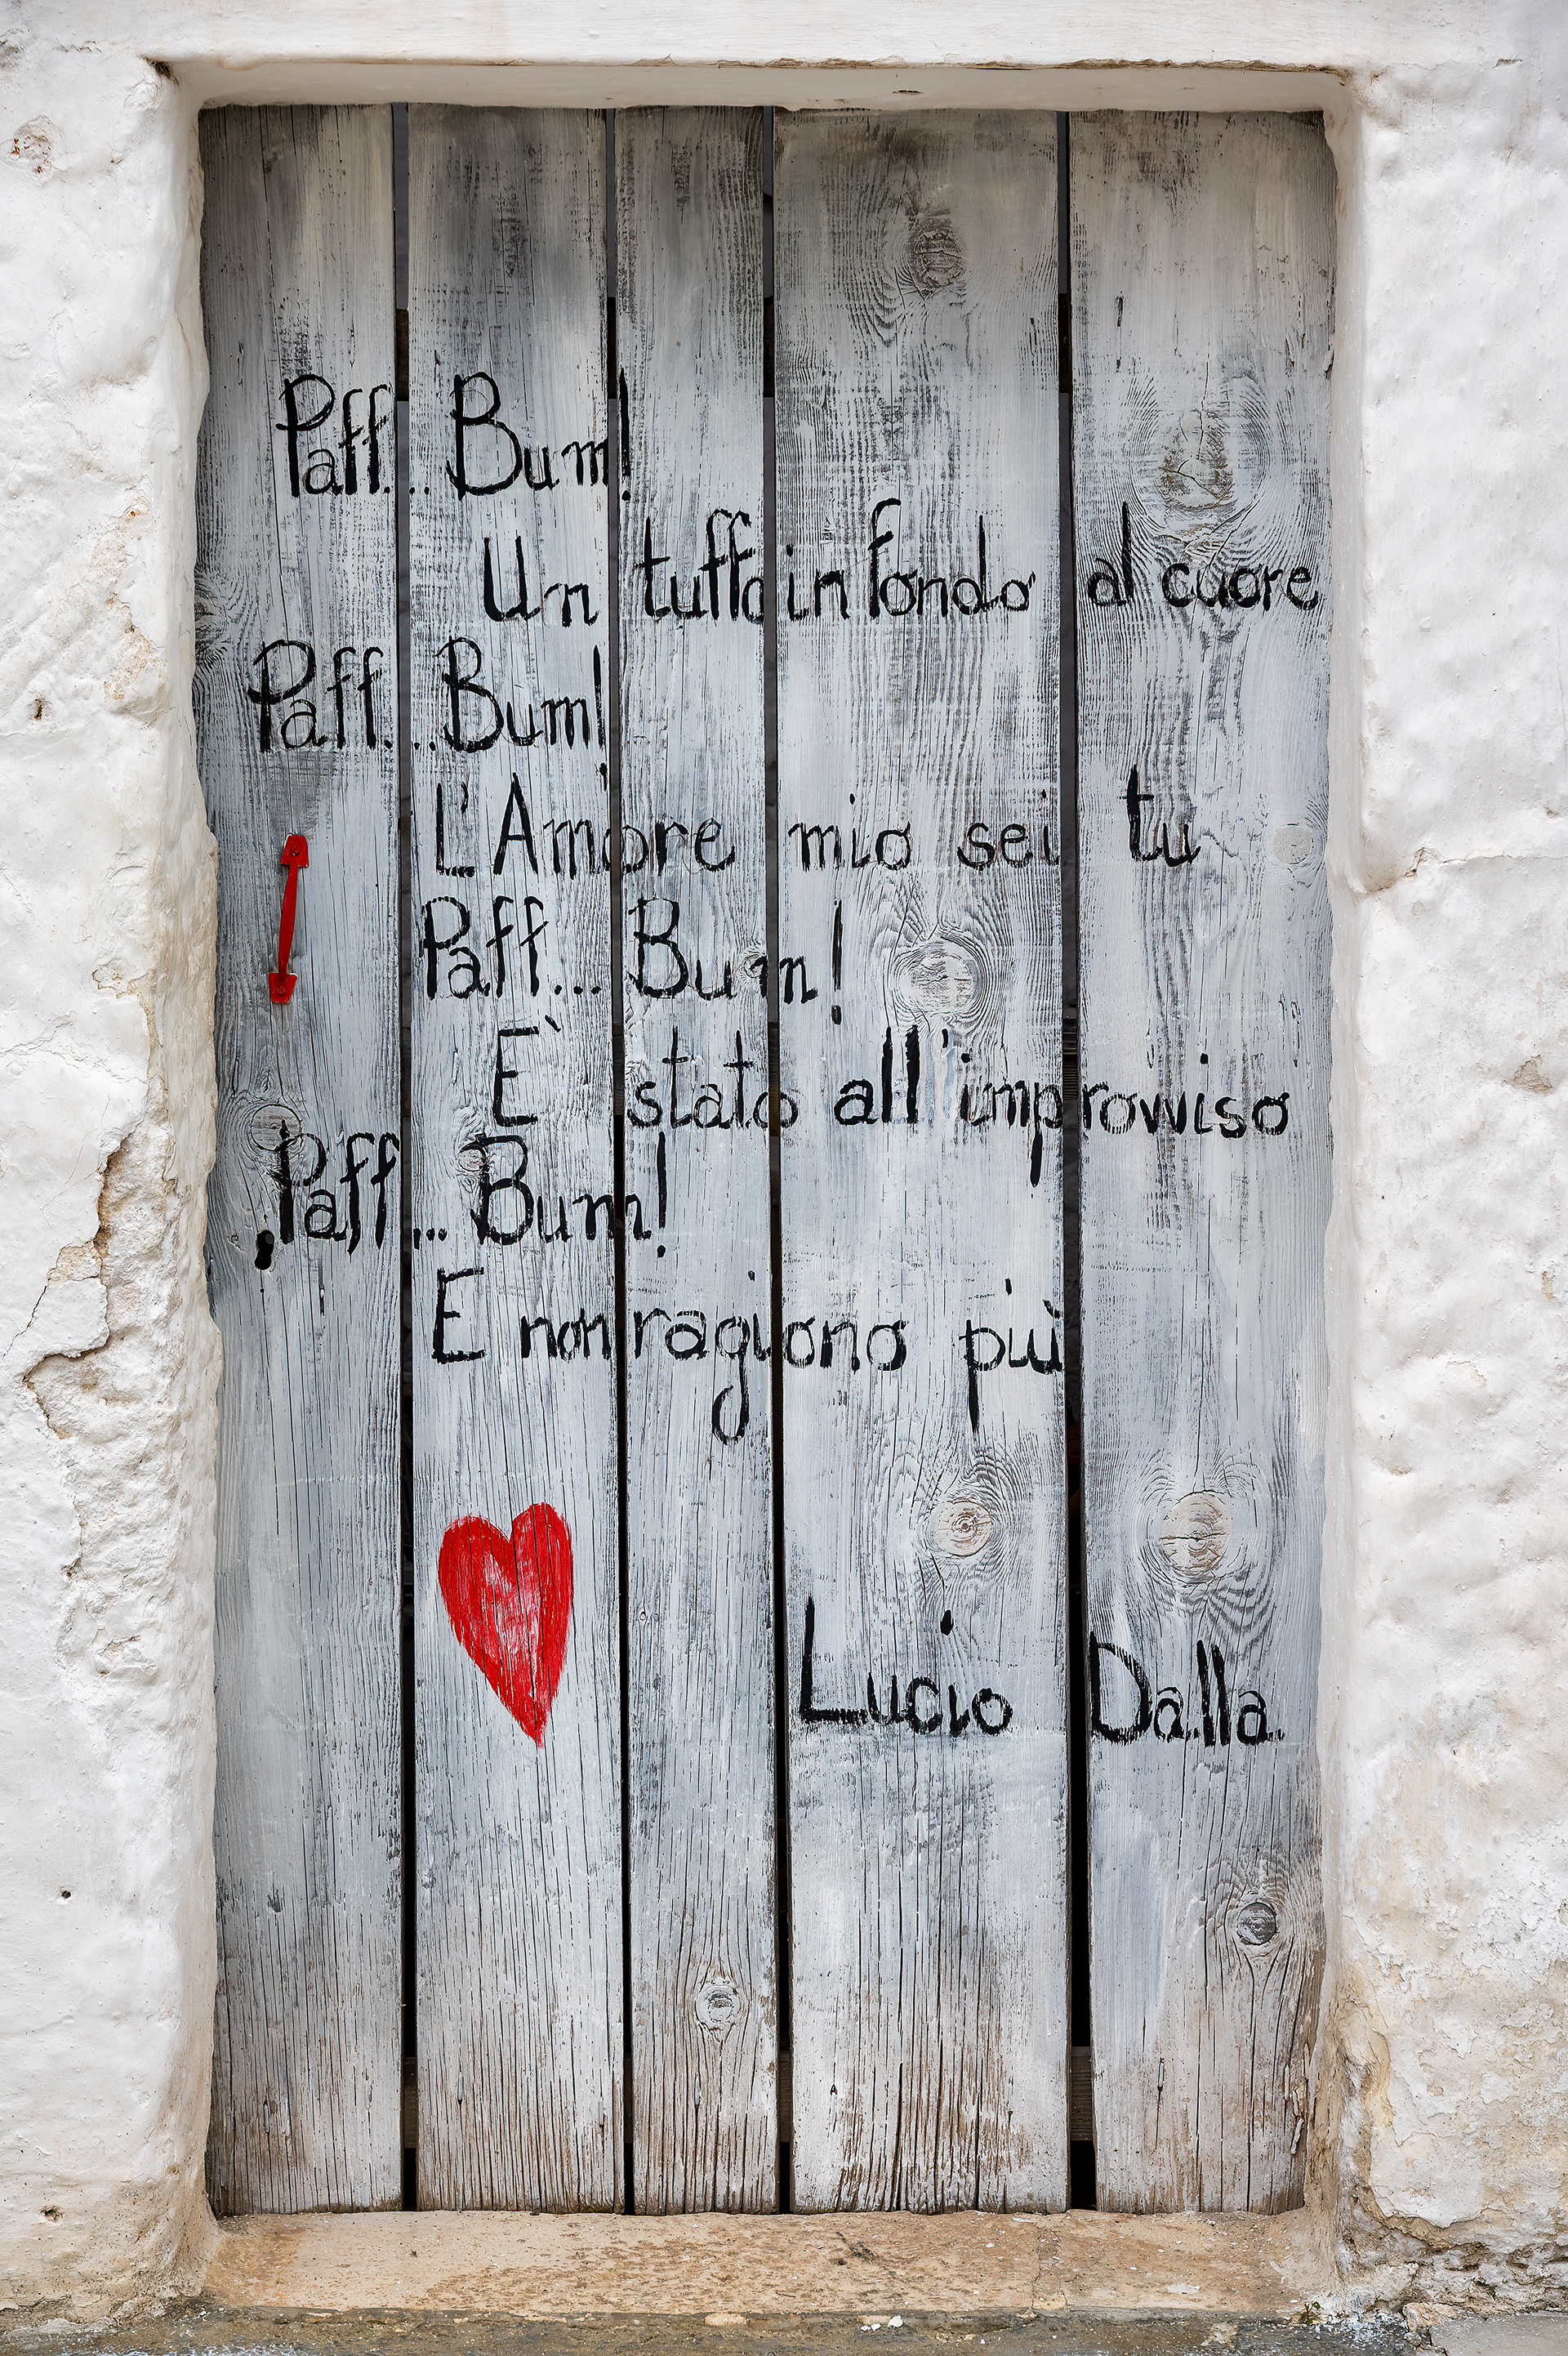 Paff... Bum!
Un tuffo in fondo al cuore
Paff...Bum!
L'Amore mio sei tu
Paff... Bum!
E` stato all'improvviso
Paff... Bum!
E non ragiono più
Lucio Dalla